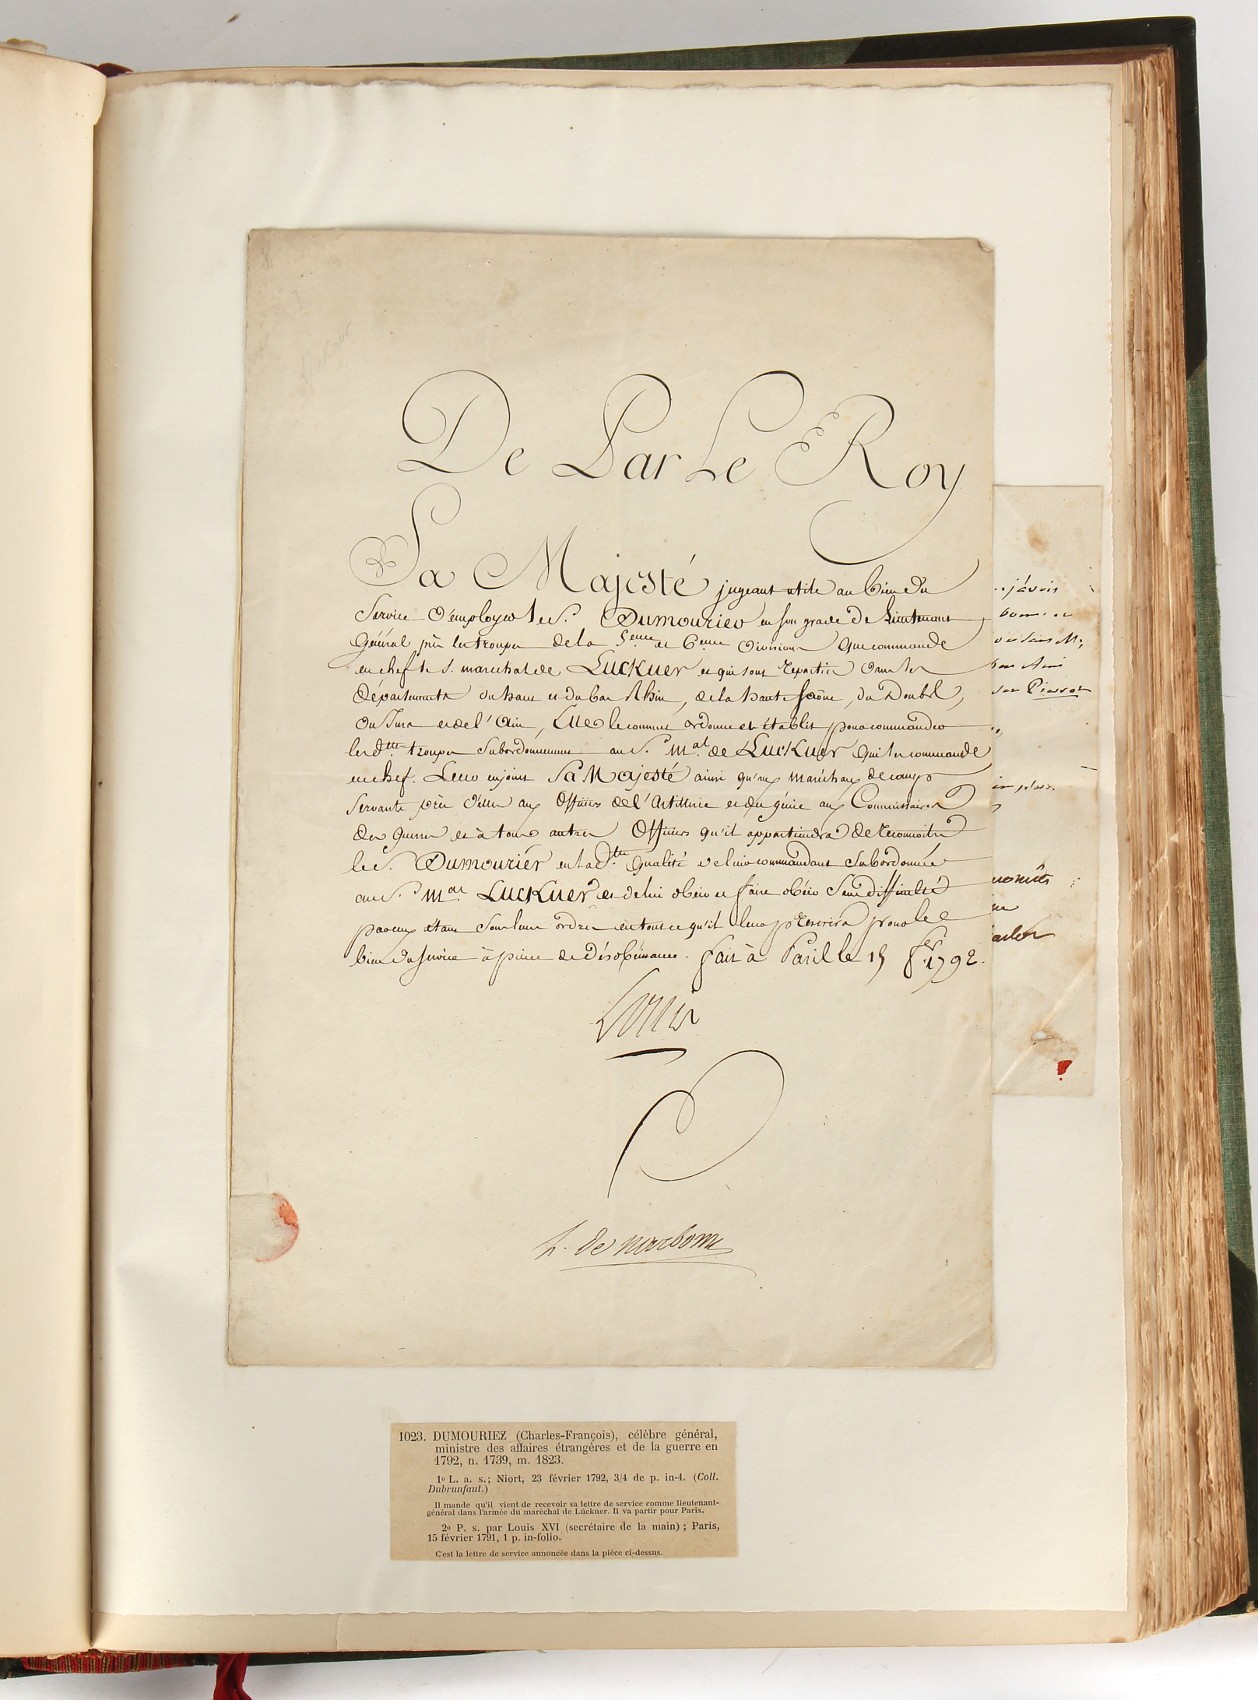 De Par Le Roy
Sa Majesté jugeant utile au bien du
Service d'employer le S. Dumourier en son grade de Lieutenant
Général près les troupes de la 5eme et 6eme Division que commande
en chef le S. marechal de Luckner et qui sont repartie dans les
départements du haut et du bas Rhin, de la haute Saône, du Doubs,
du Jura et de l'Ain, Elle le commet ordonne et établit pour commander
les dttes troupes subordonnement au S. mal de Luckner qui les commande
en chef. Leur enjoint Sa Majesté ainsi qu'aux maréchaux de camp
servants près d'elles aux officiers de l'artillerie et du génie aux Commissaires
des guerres et à tous autres officiers qu'il appartiendra de reconnoitre
le S. Dumouriér en lad.te qualité de leur commandant subordonnée
au S. mal Luckner et de lui obéir et faire obéir sans difficulté
par ceux étant sous leurs ordres en tout ce qu'il leur prescrira pour le
bien du service à peine de désobéissance. fait à Paris le 15 fer 1792.
Louis
L. de narbonne
j'avois
1023. DUMOURIEZ (Charles-François), célèbre général,
ministre des affaires étrangères et de la guerre en
1792, n. 1739, m. 1823.
1º L. a. s.; Niort, 23 février 1792, 3/4 de p. in-4. (Coll.
Dubrunfaut.)
Il mande qu'il vient de recevoir sa lettre de service comme lieutenant-
général dans l'armée du maréchal de Lückner. Il va partir pour Paris.
2º P. s. par Louis XVI (secrétaire de la main) ; Paris,
15 février 1791, 1 p. in-folio.
C'est la lettre de service annoncée dans la pièce ci-dessus.